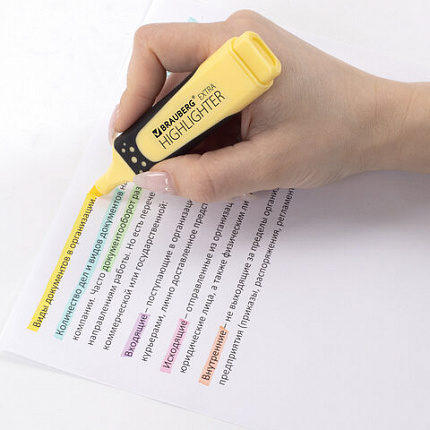 BRAUBERG® EXTRA
HIGHLIGHTER
Виды документов в организации.
Количество дел и видов документов
компании. Часто документооборот раз
направлениям работы. Но есть перече
коммерческой или государственной:
Входящие – поступающие в организац
курьерами, лично доставленное предст
Исходящие – отправленные из организац
юридические лица, а также физическим ли
Внутренние – не выходящие за пределы органи
предприятия (приказы, распоряжения, регламент